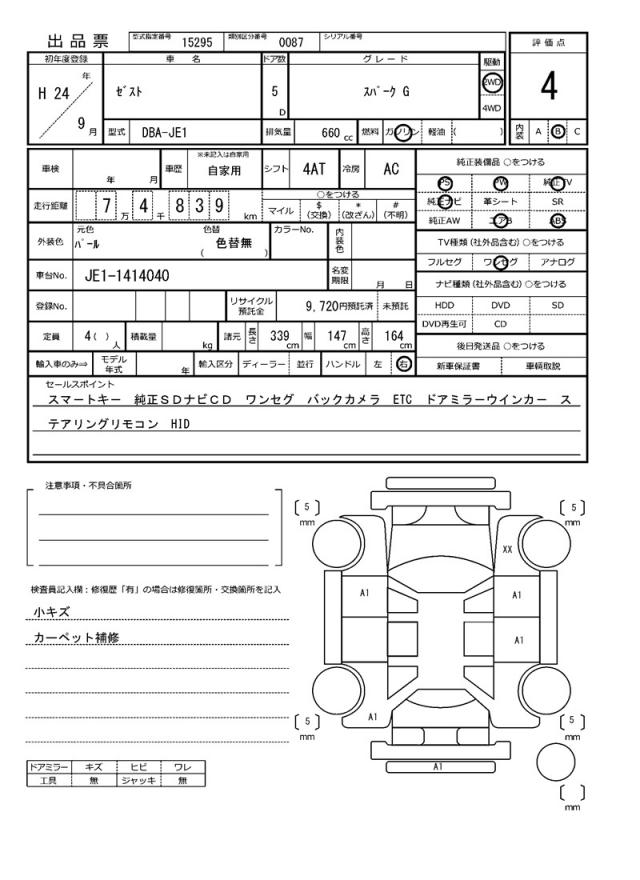 出品票 型式指定番号 15295 類別区分番号 0087 シリアル番号
評価点
4
内装 A B C
初年度登録 車名 ドア数 グレード 駆動
H 24 年 9 月 ｾﾞｽﾄ 5 D ｽﾊﾟｰｸ G 2WD
4WD
型式 DBA-JE1 排気量 660 cc 燃料 ガソリン 軽油 ( )
車検 年 月 車歴 ※未記入は自家用 自家用 シフト 4AT 冷房 AC
走行距離 7 万 4 千 8 3 9 km
○をつける
マイル $(交換) *(改ざん) #(不明)
外装色 元色 ﾊﾟｰﾙ 色替 色替無 ( ) カラーNo. 内装色
車台No. JE1-1414040 名変期限 月 日
登録No. リサイクル預託金 9,720円預託済 未預託
定員 4( ) 人 積載量 kg 諸元 長さ 339 cm 幅 147 cm 高さ 164 cm
輸入車のみ⇒ モデル年式 年 輸入区分 ディーラー 並行 ハンドル 左 右
純正装備品 ○をつける
PS PW 純正TV
純正ナビ 革シート SR
純正AW エアB ABS
TV種類 (社外品含む) ○をつける
フルセグ ワンセグ アナログ
ナビ種類 (社外品含む) ○をつける
HDD DVD SD
DVD再生可 CD
後日発送品 ○をつける
新車保証書 車輌取説
セールスポイント
スマートキー 純正ＳＤナビＣＤ ワンセグ バックカメラ ETC ドアミラーウインカー ス
テアリングリモコン HID
注意事項・不具合箇所
検査員記入欄：修復歴「有」の場合は修復箇所・交換箇所を記入
小キズ
カーペット補修
ドアミラー キズ ヒビ ワレ
工具 無 ジャッキ 無
5 mm
5 mm
XX
A1
A1
A1
A1
5 mm
5 mm
A1
mm